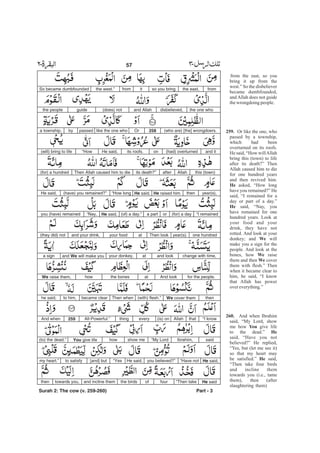 البقرة-٢
57
تلك الرسل-٣
from
the east,
so you bring
it
from
the west."
So became dumbfounded
the one who
disbelieved,
and Allah
(does) not
guide
the people
[the] wrongdoers.
(who are)
258
Or
like the one who
passed
by
a township,
and it
(had) overturned
on
its roofs.
He said,
"How
(will) bring to life
this (town)
Allah
after
its death?"
Then Allah caused him to die
(for) a hundred
year(s),
then
He raised him.
He said,
"How long
(have) you remained?"
He said,
"I remained
(for) a day
or
a part
(of) a day."
He said,
"Nay,
you (have) remained
one hundred
year(s).
Then look
at
your food
and your drink,
(they did) not
change with time,
and look
at
your donkey,
and We will make you
a sign
for the people.
And look
at
the bones
how
We raise them,
then
We cover them
(with) flesh."
Then when
became clear
to him,
he said,
"I know
that
Allah
(is) on
every
thing
All-Powerful."
259
And when
Ibrahim,
said
"My Lord
show me
how
You give life
(to) the dead."
He said,
"Have not
you believed?"
He said,
"Yes
[and] but
to satisfy
my heart."
He said
"Then take
four
of
the birds
and incline them
towards you,
then
from the east, so you
bring it up from the
west." So the disbeliever
became dumbfounded,
and Allah does not guide
the wrongdoing people.
259. Or like the one, who
passed by a township,
which had been
overturned on its roofs.
He said, "How will Allah
bring this (town) to life
after its death?" Then
Allah caused him to die
for one hundred years
and then revived him.
He asked, "How long
have you remained?" He
said, "I remained for a
day or part of a day."
He said, "Nay, you
have remained for one
hundred years. Look at
your food and your
drink, they have not
rotted. And look at your
donkey; and We will
make you a sign for the
people. And look at the
bones, how We raise
them and then We cover
them with flesh." Then
when it became clear to
him, he said, "I know
that Allah has power
over everything."
260. And when Ibrahim
said, "My Lord, show
me how You give life
to the dead." He
said, "Have you not
believed?" He replied,
"Yes, but (let me see it)
so that my heart may
be satisfied." He said,
"Then take four birds
and incline them
towards you (i.e., tame
them), then (after
slaughtering them)
Surah 2: The cow (v. 259-260)
Part - 3